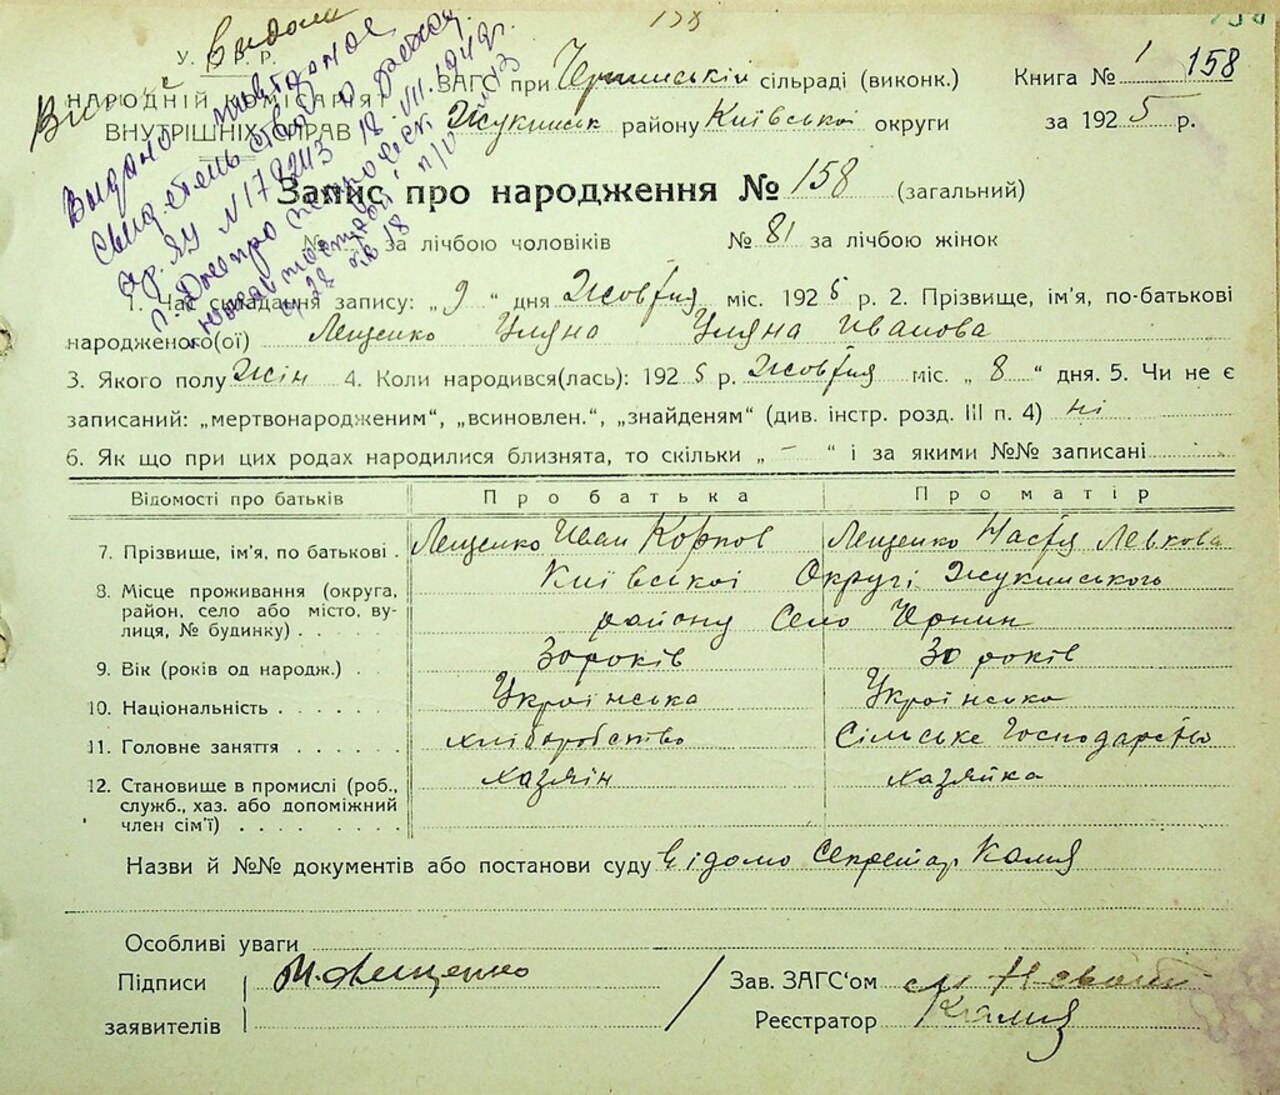 158
У. С. Р. Р.
НАРОДНІЙ КОМІСАРІЯТ
ВНУТРІШНІХ СПРАВ
ЗАГС при Чернинській сільраді (виконк.)
Жукинськ району Київської округи
Книга № 1 158
за 1925 р.
Видано повторное
свид
№ 178243 18.VII.1942г.
г. Днепро
Запис про народження № 158 (загальний)
№ за лічбою чоловіків № 81 за лічбою жінок
1. Час складання запису: „ 9 “ дня Жовтня міс. 1925 р. 2. Прізвище, ім'я, по-батькові
народженого(ої) Лещенко Уляна Уляна Иванова
3. Якого полу Жін 4. Коли народився(лась): 1925 р. Жовтня міс. „ 8 “ дня. 5. Чи не є
записаний: „мертвонародженим“, „всиновлен.“, „знайденям“ (див. інстр. розд. III п. 4) ні
6. Як що при цих родах народилися близнята, то скільки „ – “ і за якими №№ записані
Відомості про батьків Про батька Про матір
7. Прізвище, ім'я, по батькові . Лещенко Иван Корпов Лещенко Настя Левкова
8. Місце проживання (округа, район, село або місто, вулиця, № будинку) . . Київської Округі Жукинського
району Село Чернин
9. Вік (років од народж.) . 30 років 30 років
10. Національність . . . . . . Українська Українська
11. Головне заняття . . . . . . хліборобство Сільське Господарство
12. Становище в промислі (роб., служб., хаз. або допоміжний член сім'ї) . . . . . . . . хазяїн хазяйка
Назви й №№ документів або постанови суду відомо Секретар Каля
Особливі уваги
Підписи заявителів И. Лещенко
Зав. ЗАГС‘ом
Реєстратор